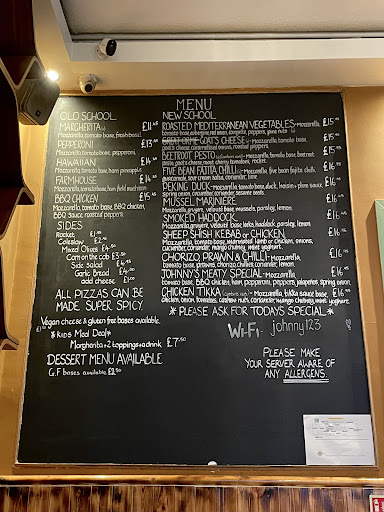 MENU
OLD SCHOOL
MARGHERITA (v) £11.45
Mozzarella, tomato base, fresh basil.
PEPPERONI £13.45
Mozzarella, tomato base, pepperoni.
HAWAIIAN £14.45
Mozzarella, tomato base, ham, pineapple.
FARMHOUSE £14.45
Mozzarella, tomato base, ham, field mushroom
BBQ CHICKEN £15.45
Mozzarella, tomato base, BBQ chicken,
BBQ sauce, roasted peppers.
SIDES
Rocket £1.95
Coleslaw
Mixed Olives £4.50
Corn on the cob £3.50
Side salad £4.50
Garlic Bread £4.50
add cheese
ALL PIZZAS CAN BE
MADE SUPER SPICY
Vegan cheese & gluten free bases available.
*Kids Meal Deal*
Margherita + 2 toppings + a drink £7.50
DESSERT MENU AVAILABLE
G.F bases available £2.50
NEW SCHOOL
ROASTED MEDITERRANEAN VEGETABLES - Mozzarella, £15.45
tomato base, aubergine, red onion, courgette, peppers, pine nuts (v)
GREAT ORME GOATS CHEESE (v) - Mozzarella, tomato base, £15.45
goat's cheese, caramelised onions, roasted peppers.
BEETROOT PESTO - Mozzarella, tomato base, beetroot £15.45
pesto, goat's cheese, mint, cherry tomatoes, rocket.
FIVE BEAN FAJITA CHILLI (v) - Mozzarella, five bean fajita chilli, £16.45
guacamole, sour cream, salsa, coriander.
PEKING DUCK - Mozzarella, tomato base, duck, hoisin + plum sauce, £16.45
spring onion, cucumber, coriander, sesame seeds.
MUSSEL MARINIERE £16.45
Mozzarella, gruyere, velouté base, mussels, parsley, lemon.
SMOKED HADDOCK £16.45
Mozzarella, gruyere, velouté base, leeks, haddock, parsley, lemon
SHEEP SHISH KEBAB or CHICKEN £16.45
Mozzarella, tomato base, marinated lamb or chicken, onions,
cucumber, coriander, mango chutney, mint yoghurt.
CHORIZO, PRAWN & CHILLI - Mozzarella, £16.45
tomato base, prawns, chorizo, chillies, coriander, lemon.
JOHNNY'S MEATY SPECIAL - Mozzarella, £16.45
tomato base, BBQ chicken, ham, pepperoni, peppers, jalapeños, spring onion.
CHICKEN TIKKA - Mozzarella, tikka sauce base, £16.45
chicken, onion, tomatoes, cashew nuts, coriander, mango chutney, mint yoghurt.
* PLEASE ASK FOR TODAYS SPECIAL *
Wi-Fi - johnny123
PLEASE MAKE
YOUR SERVER AWARE OF
ANY ALLERGENS